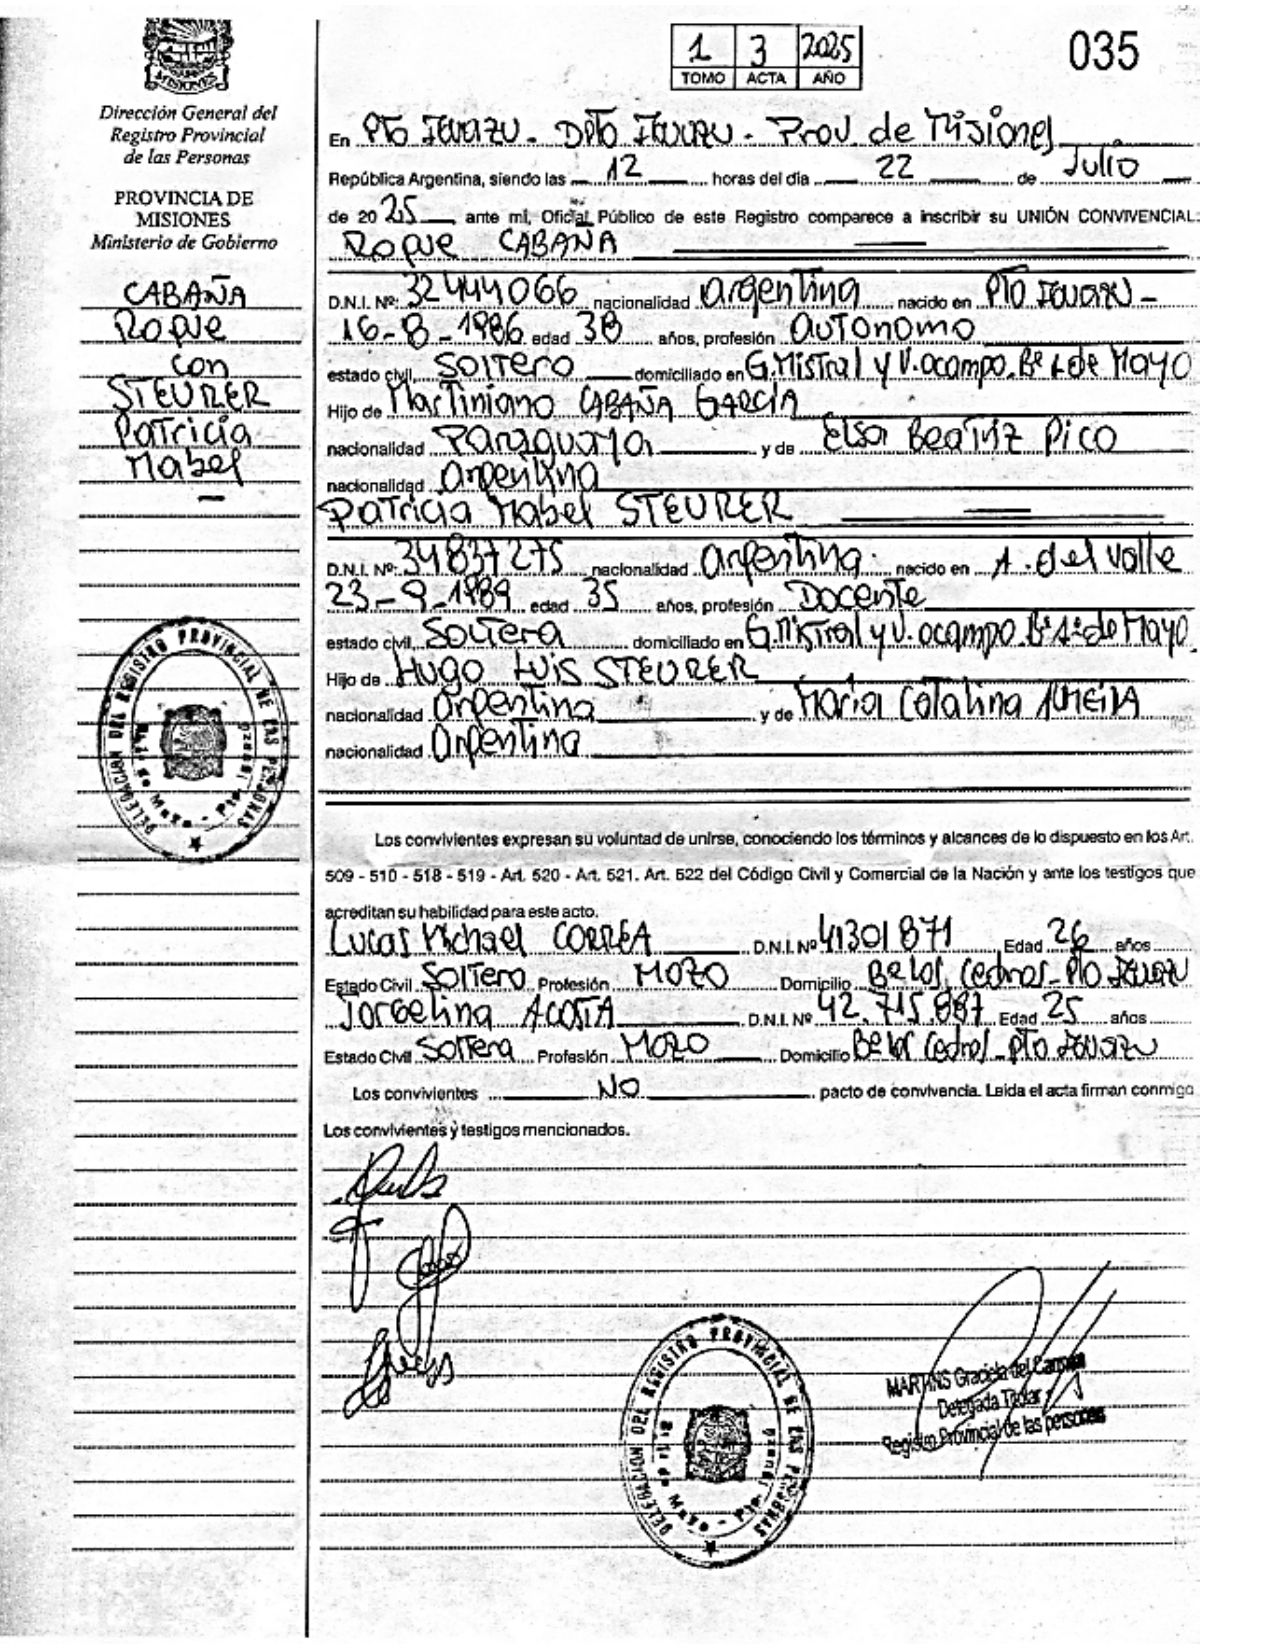 MISIONES
Dirección General del
Registro Provincial
de las Personas
PROVINCIA DE
MISIONES
Ministerio de Gobierno
CABAÑA
Roque
con
STEURER
Patricia
Mabel
1 3 2025
TOMO ACTA AÑO
035
En Pto Iguazu - Dpto Iguazu - Prov. de Misiones
República Argentina, siendo las 12 horas del día 22 de Julio
de 2025 ante mi, Oficial Público de este Registro comparece a inscribir su UNIÓN CONVIVENCIAL:
Roque CABAÑA
D.N.I. Nº: 32444066 nacionalidad argentina nacido en Pto Iguazu -
16-8-1986 edad 38 años, profesión autonomo
estado civil, soltero domiciliado en G. Mistral y V. ocampo. Bº 1 de Mayo
Hijo de Martiniano CABAÑA GARCIA
nacionalidad Paraguaya y de Elsa Beatriz Pico
nacionalidad argentina
Patricia Mabel STEURER
D.N.I. Nº: 34837275 nacionalidad argentina. nacido en A. del valle
23-9-1989 edad 35 años, profesión Docente
estado civil, Soltera domiciliado en G. Mistral y V. ocampo. Bº 1º de Mayo
Hijo de Hugo Luis STEURER
nacionalidad argentina y de María Catalina
nacionalidad argentina
Los convivientes expresan su voluntad de unirse, conociendo los términos y alcances de lo dispuesto en los Art.
509 - 510 - 518 - 519 - Art. 520 - Art. 521. Art. 522 del Código Civil y Comercial de la Nación y ante los testigos que
acreditan su habilidad para este acto.
Lucas Michael CORREA D.N.I. Nº 41301871 Edad 26 años
Estado Civil Soltero Profesión MOZO Domicilio Bº Los Cedros - Pto Iguazu
Jorgelina ACOSTA D.N.I. Nº 42.715.887 Edad 25 años
Estado Civil Soltera Profesión MOZO Domicilio Bº Los Cedros - Pto Iguazu
Los convivientes NO pacto de convivencia. Leida el acta firman conmigo
Los convivientes y testigos mencionados.
DELEGACION DEL REGISTRO PROVINCIAL DE LAS PERSONAS
MARTINS Graciela del Carmen
Delegada Titular
Registro Provincial de las personas
DELEGACION DEL REGISTRO PROVINCIAL DE LAS PERSONAS